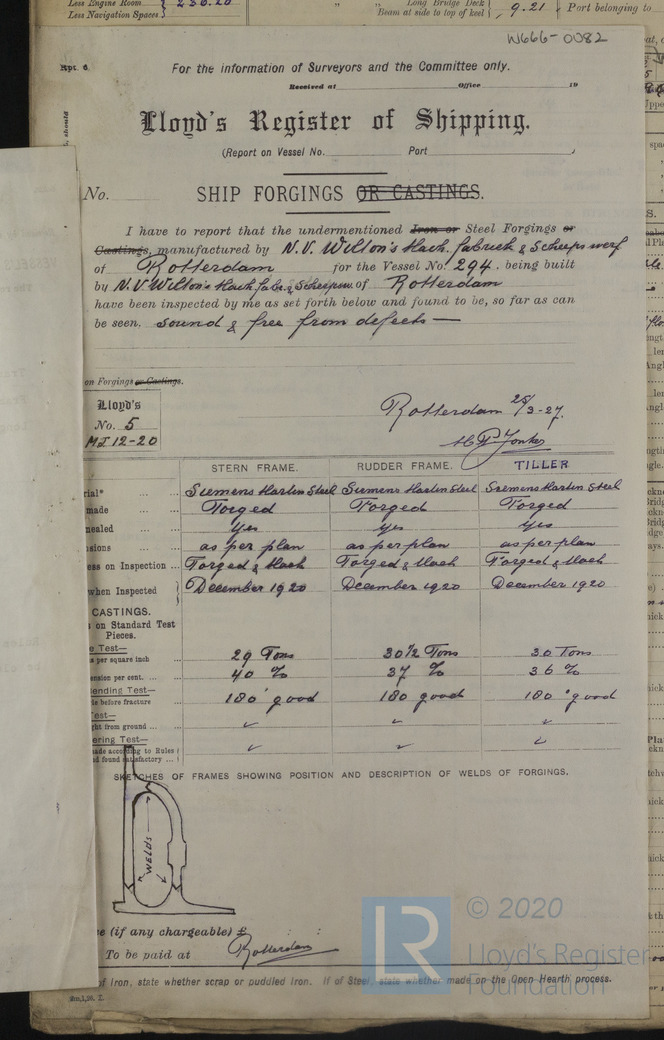 Less Engine Room
Less Navigation Spaces
Long Bridge Deck
Beam at side to top of keel 9.21 Port belonging to
W666-0082
Rpt. 6.
For the information of Surveyors and the Committee only.
Received at Office 19
Lloyd's Register of Shipping.
(Report on Vessel No. Port )
No. SHIP FORGINGS OR CASTINGS.
I have to report that the undermentioned Iron or Steel Forgings or
Castings, manufactured by N.V. Wilton's Mach. fabriek & Scheepswerf
of Rotterdam for the Vessel No. 294. being built
by N.V. Wilton's Mach. fabr. & Scheepsw of Rotterdam
have been inspected by me as set forth below and found to be, so far as can
be seen, sound & free from defects —
on Forgings or Castings.
Lloyd's
No. 5
MJ 12-20
Rotterdam 25/3-27.
H P Jonker
STERN FRAME. RUDDER FRAME. TILLER
ial* Siemens Martin Steel Siemens Martin Steel Siemens Martin Steel
made Forged Forged Forged
ealed yes yes yes
sions as per plan as per plan as per plan
ess on Inspection Forged & Mach Forged & Mach Forged & Mach
when Inspected December 1920 December 1920 December 1920
CASTINGS.
on Standard Test
Pieces.
e Test—
s per square inch 29 Tons 30½ Tons 30 Tons
ension per cent. 40 % 37 % 36 %
Bending Test—
le before fracture 180° good 180 good 180° good
Test—
ght from ground
ering Test—
ade according to Rules
d found satisfactory
SKETCHES OF FRAMES SHOWING POSITION AND DESCRIPTION OF WELDS OF FORGINGS.
WELDS
e (if any chargeable) £ : :
To be paid at Rotterdam
of Iron, state whether scrap or puddled Iron. If of Steel, state whether made on the Open Hearth process.
LR
© 2020
Lloyd's Register
Foundation